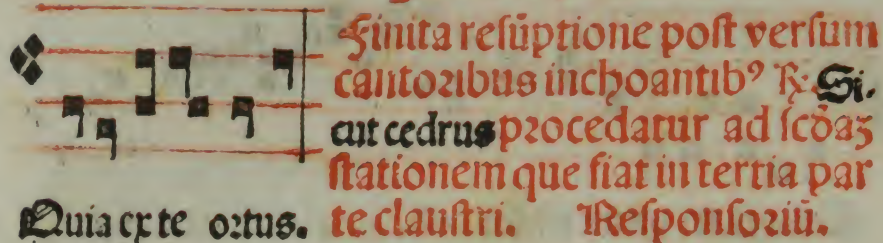 Finita resūptione post versum
cantoribus inchoantibꝰ ℟. Si.
cut cedrus procedatur ad scd̄aꝫ
stationem que fiat in tertia par
Quia ex te ortus. te claustri. Responsoriū.